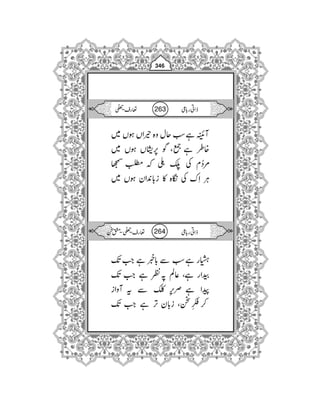 346
ذاتی رباعی 263 تعارف
آئینہ ہے سب حال وہ حیراں ہوں میں
خاطر ہے جمع، گو پریشاں ہوں میں
مردم کی پلک ہلی کہ مطلب سمجھا
ہر اک کی نگاہ کا زباندان ہوں میں
ذاتی رباعی 264 تعارف
ہشیار ہے سب سے باخبر ہے جب تک
بیدار ہے، عالم پہ نظر ہے جب تک
پیدا ہے صریرِ کلک سے یہ آواز
کر فکرِ سخن، زبان تر ہے جب تک